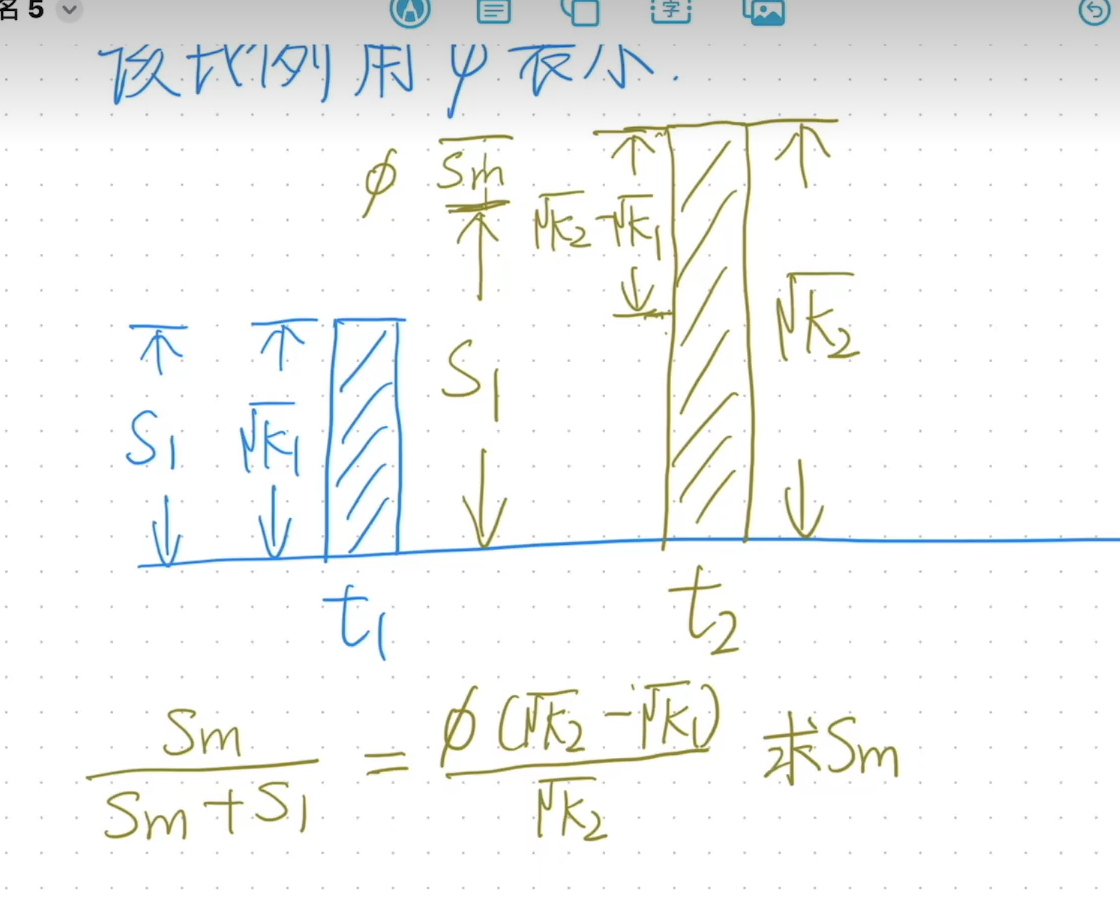 名 5
字
该比例用 ψ 表示.
ϕ Sm √k₂-√k₁
√k₂
S₁
S₁ √k₁
t₁ t₂
Sm/(Sm+S₁) = ϕ(√k₂-√k₁)/√k₂ 求Sm